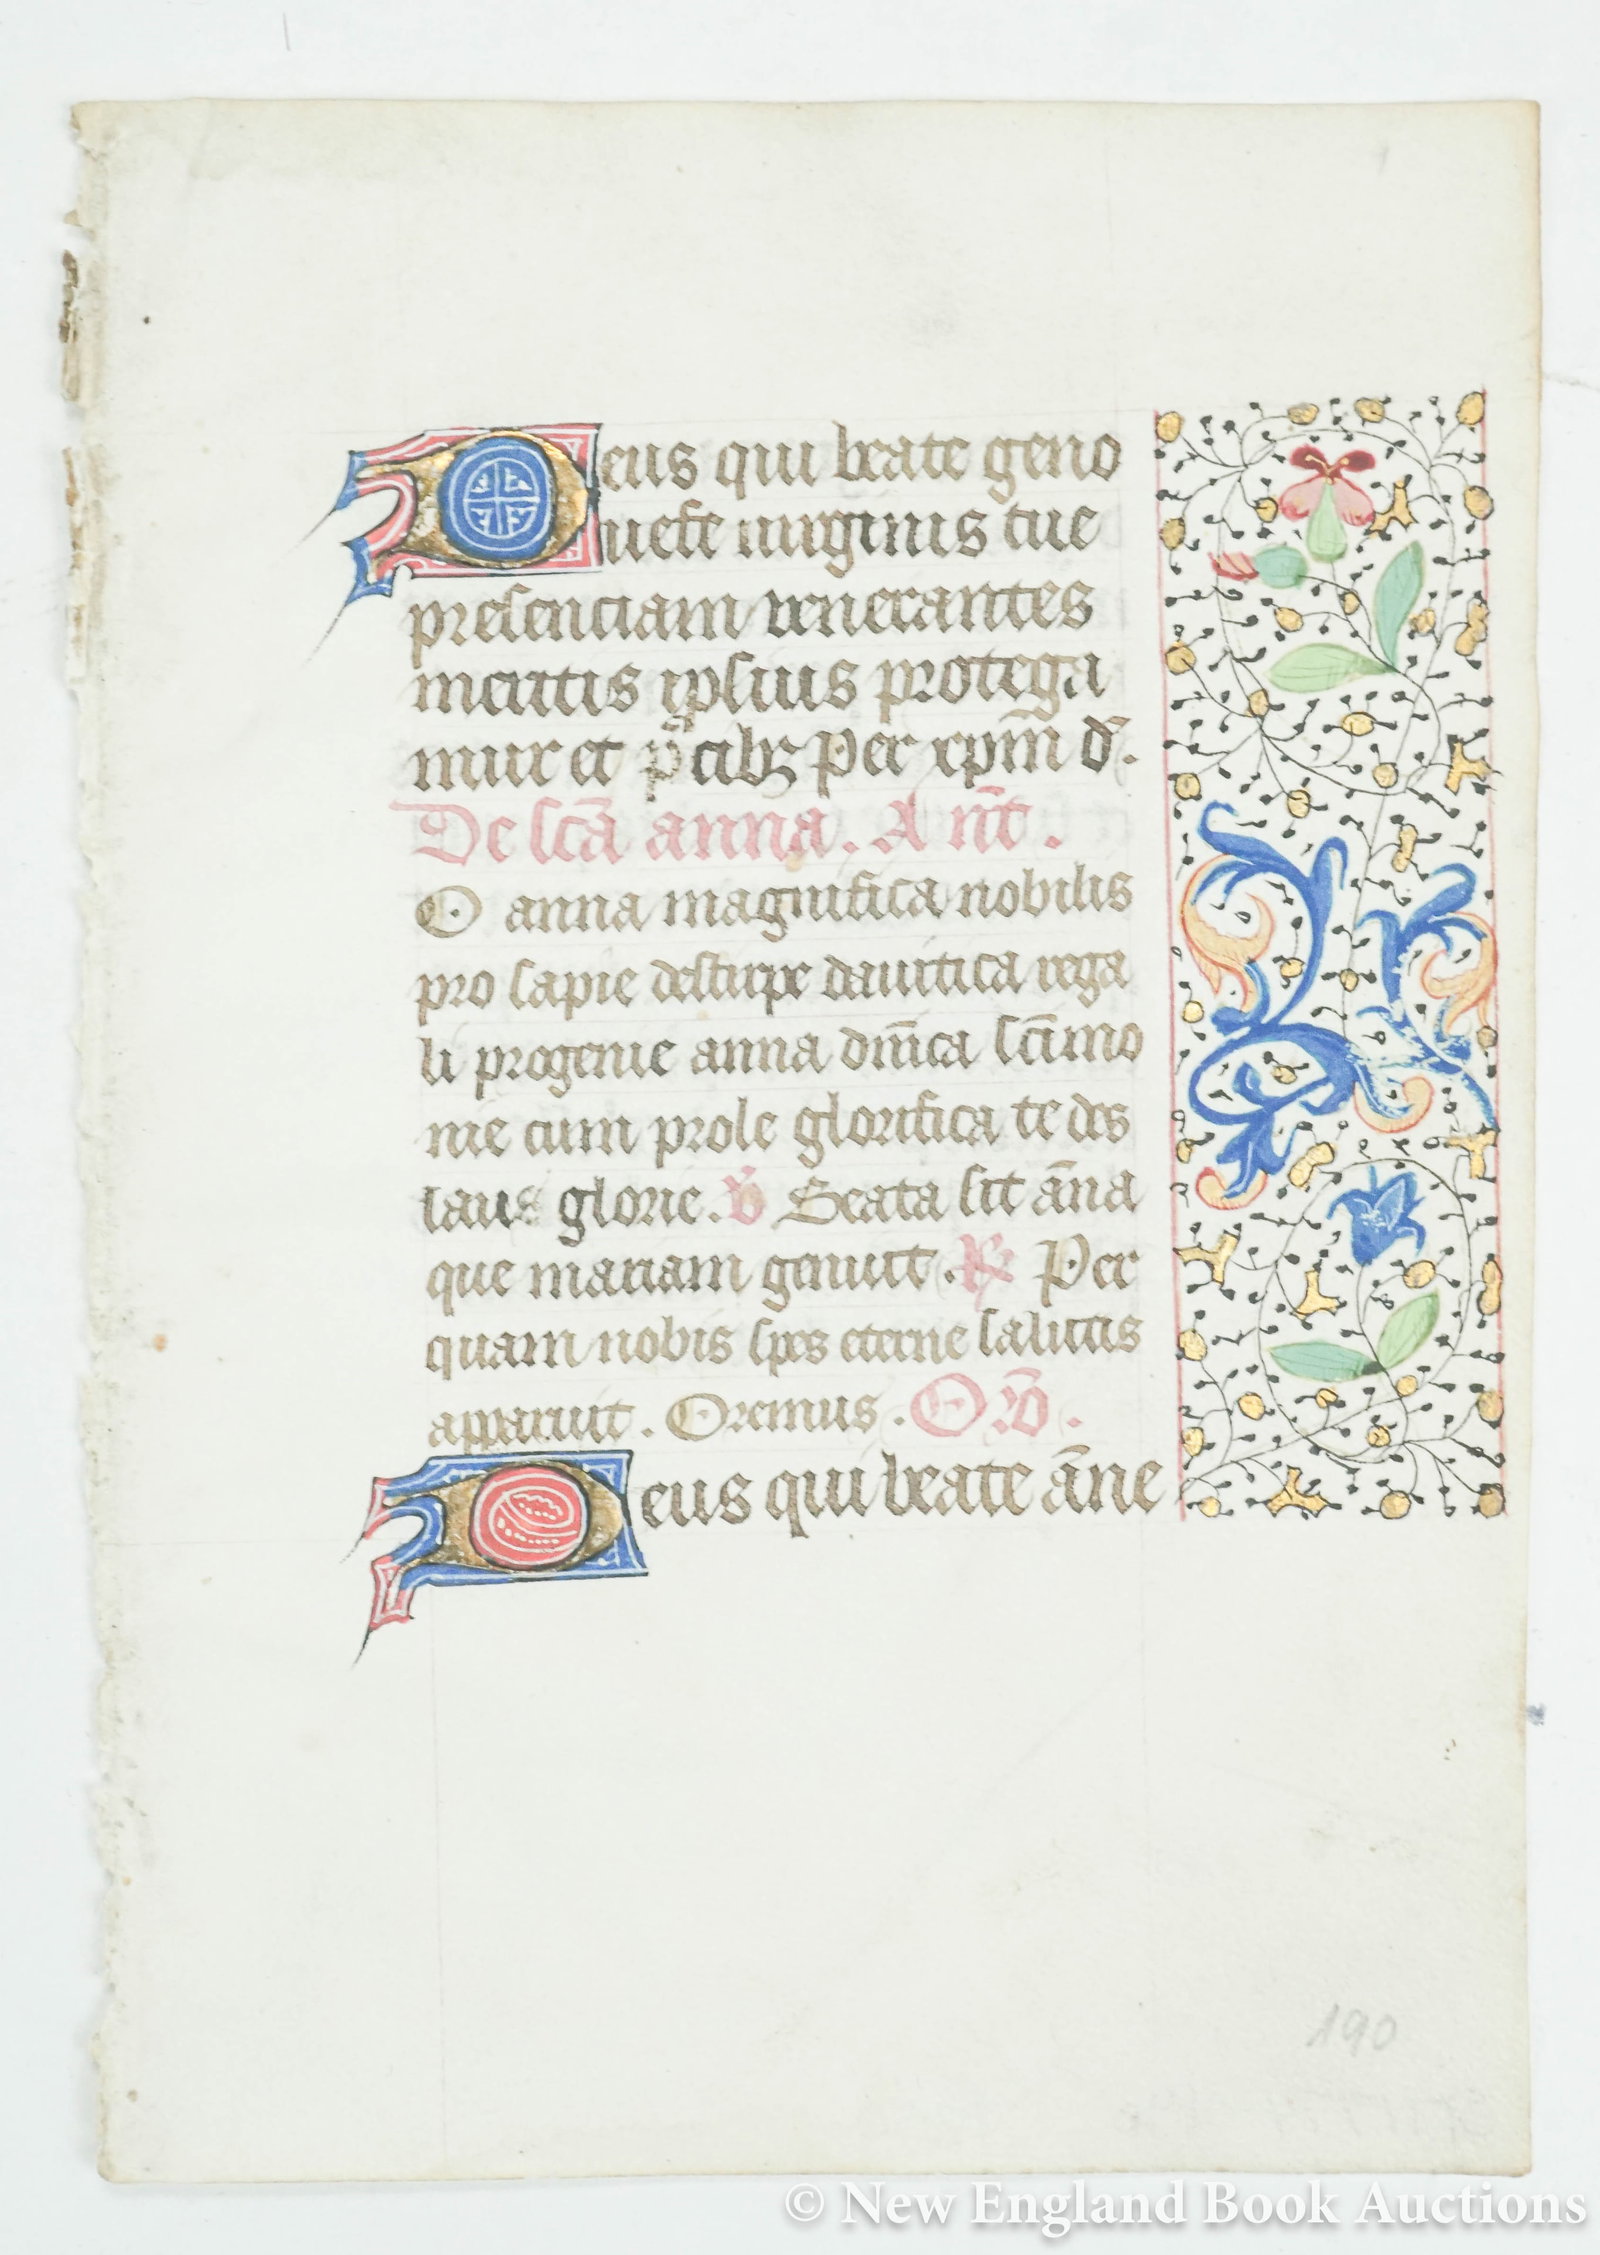 Deus qui beate geno
uefe uirginis tue
presenciam venerantes
meritis ipsius protega
mur et p̄cibꝫ Per xpm̄ d̄.
De sc̄a anna. Ant̄.
O anna magnifica nobilis
pro sapie destirpe dauitica rega
li progenie anna dn̄ica sc̄imo
nie cum prole glorifica te des
laus glorie. ℣ Beata sit ān̄a
que mariam genuit. ℟ Per
quam nobis spes eterne salutis
apparuit. Oremus. Or̄o.
Deus qui beate ān̄e
190
© New England Book Auctions